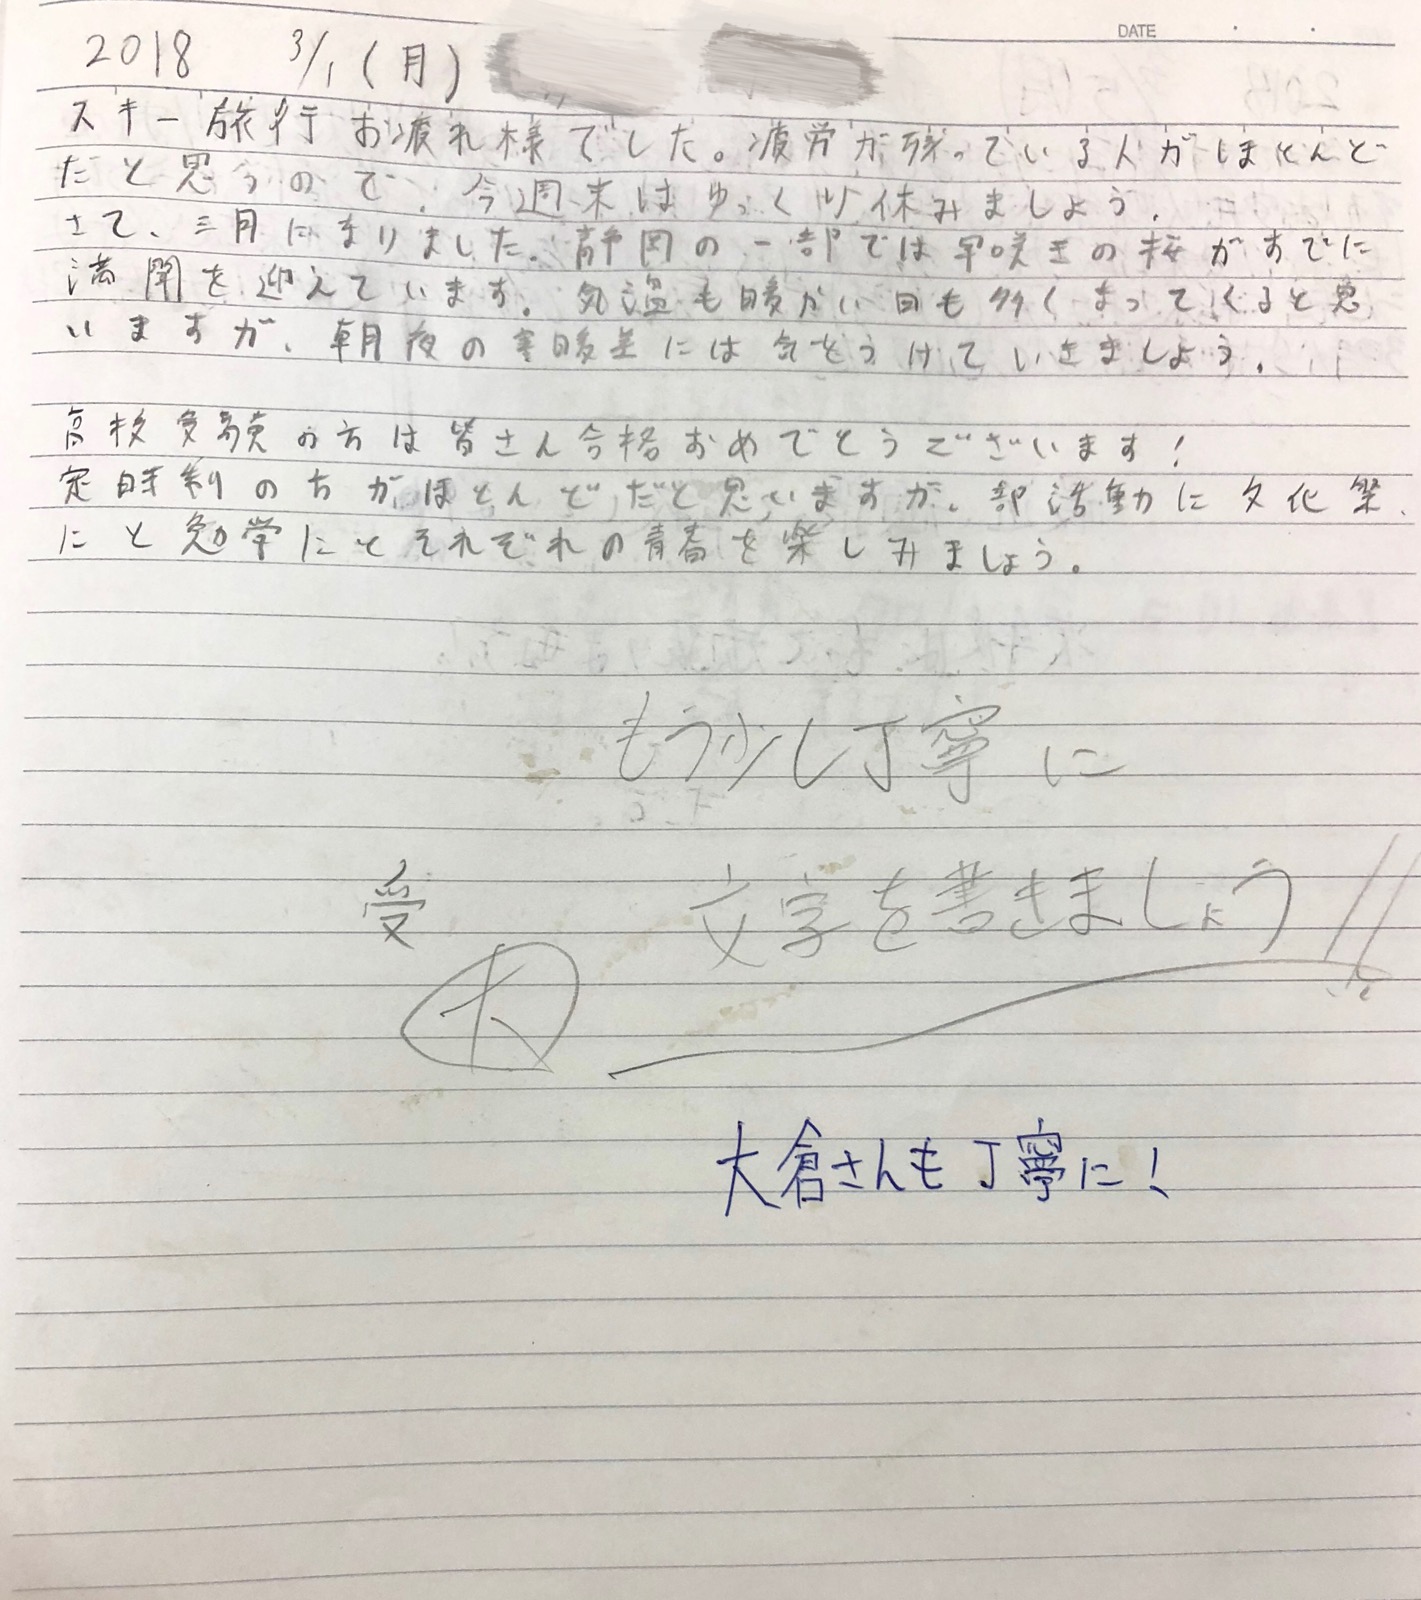 DATE
2018 3/1(月)
スキー旅行お疲れ様でした。疲労が残っている人がほとんど
だと思うので、今週末はゆっくり休みましょう。
さて、三月になりました。静岡の一部では早咲きの桜がすでに
満開を迎えています。気温も暖かい日も多くなってくると思
いますが、朝夜の寒暖差には気をつけていきましょう。
高校受験の方は皆さん合格おめでとうございます!
定時制の方がほとんどだと思いますが、部活動に文化祭
にと勉学にとそれぞれの青春を楽しみましょう。
もう少し丁寧に
受 文字を書きましょう!!
大
大倉さんも丁寧に!